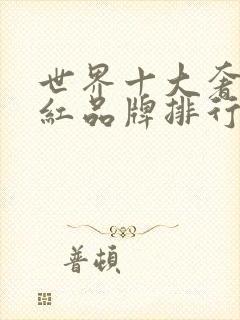 世界十大奢
紅品牌排行
普頓